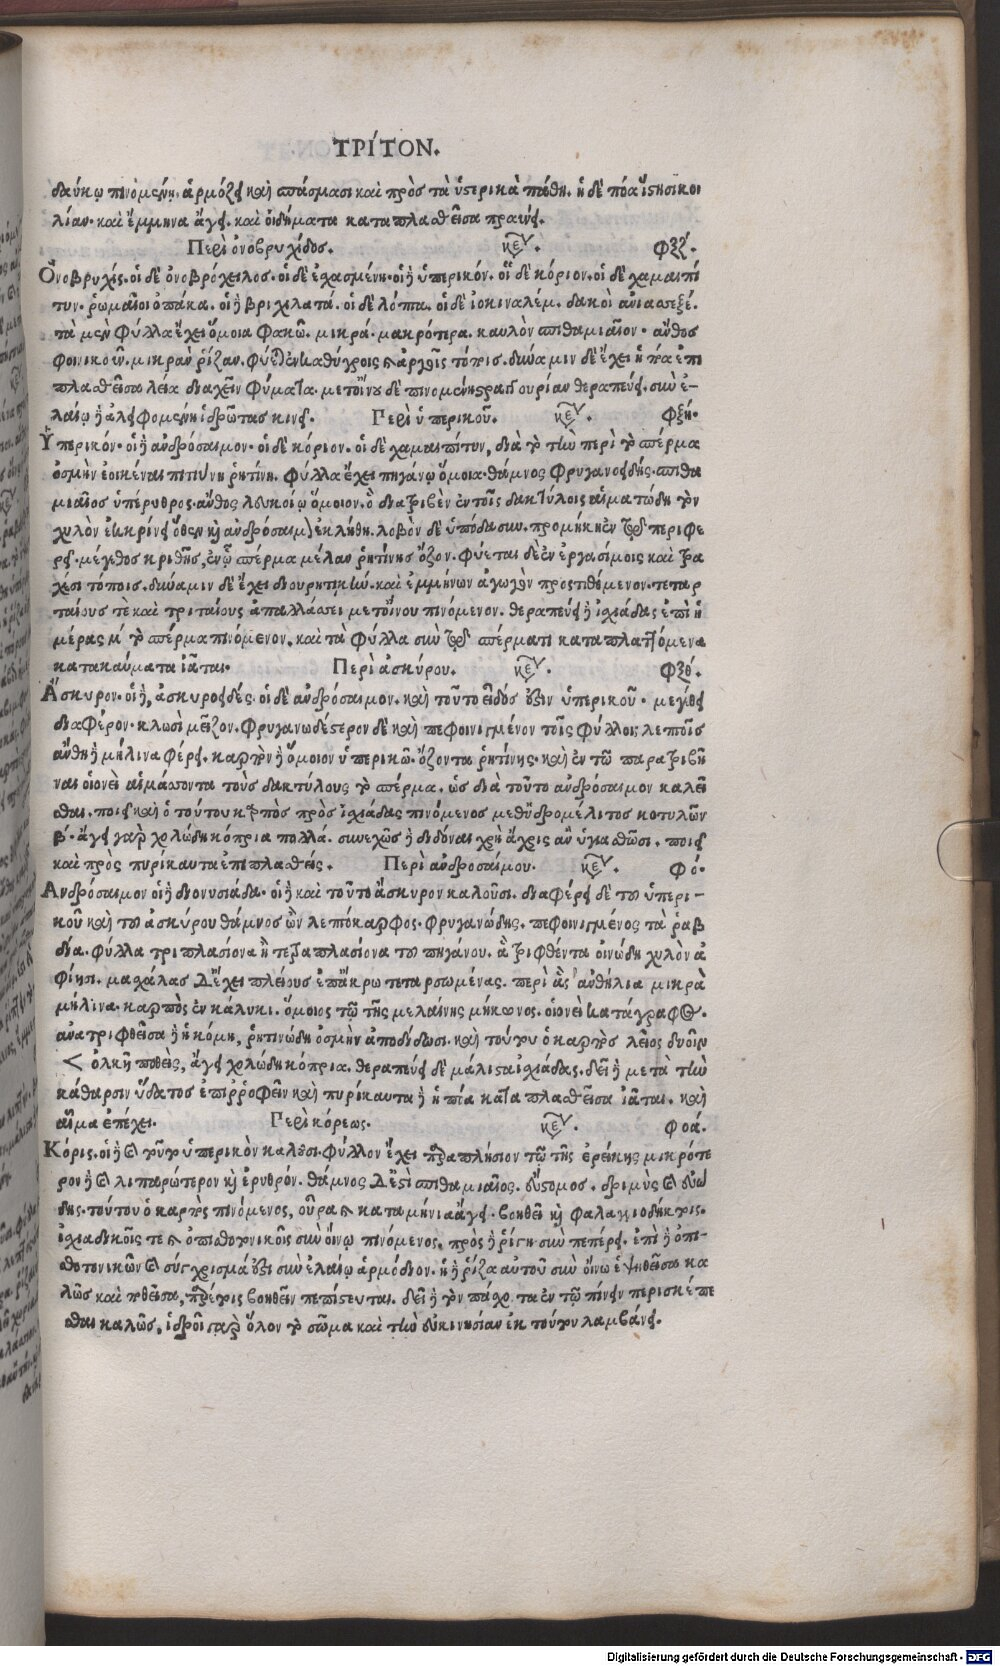 ΤΡΊΤΟΝ.
δαύκῳ πινόμενη. ἁρμόζει καὶ σπάσμασι καὶ πρὸς τὰ ὑστερικὰ πάθη. ἡ δὲ πόα ἵστησι κοι
λίαν· καὶ ἔμμηνα ἄγει. καὶ οἰδήματα καταπλασθεῖσα πραΰνει.
Περὶ ὀνοβρυχίδος. κεφ. φξζ́.
Ὀνοβρυχίς. οἱ δὲ ὀνοβρόχειλος. οἱ δὲ ἐχασμένη. οἱ δὲ ὑπερικόν. οἱ δὲ κόριον. οἱ δὲ χαμαιπί
τυν. ῥωμαῖοι ὀπάκα. οἱ δὲ βριχιλατά. οἱ δὲ λόπτα. οἱ δὲ ἰοκιναλέμ. δακοὶ ἀνιασσεξέ.
τὰ μὲν φύλλα ἔχει ὅμοια φακῷ. μικρά. μακρότερα. καυλὸν σπιθαμιαῖον. ἄνθος
φοινικοῦν. μικρὰν ῥίζαν. φύεται ἐν καθύγροις καὶ ἀργοῖς τόποις. δύναμιν δὲ ἔχει ἡ πόα ἐπι
πλασθεῖσα λεία διαχεῖν φύματα. μετ' οἴνου δὲ πινομένη στραγγουρίαν θεραπεύει. σὺν ἐ-
λαίῳ δὲ ἀλειφομένη ἱδρῶτας κινεῖ. Περὶ ὑπερικοῦ. κεφ. φξή.
Ὑπερικόν· οἱ δὲ ἀνδρόσαιμον. οἱ δὲ κόριον. οἱ δὲ χαμαιπίτυν, διὰ τὸ τὴν περὶ τὸ σπέρμα
ὀσμὴν ἐοικέναι πιτυΐνῃ ῥητίνῃ. φύλλα ἔχει πηγάνῳ ὅμοια. θάμνος φρυγανοειδής. σπιθα
μιαῖος ὑπέρυθρος. ἄνθος λευκοίῳ ὅμοιον. ὃ διατριβὲν ἐν τοῖς δακτύλοις αἱματώδη τὸν
χυλὸν ἐκκρίνει ὅθεν καὶ ἀνδρόσαιμον ἐκλήθη. λοβὸν δὲ ὑπόδασυν. προμήκη ἐν τῷ περιφε
ρεῖ. μέγεθος κριθῆς, ἐν ᾧ σπέρμα μέλαν ῥητίνης ὄζον. φύεται δὲ ἐν ἐργασίμοις καὶ τρα
χέσι τόποις. δύναμιν δὲ ἔχει διουρητικήν. καὶ ἐμμήνων ἀγωγὸν προςτιθέμενον. τεταρ
ταίους τε καὶ τριταίους ἀπαλλάσσει μετ' οἴνου πινόμενον. θεραπεύει δὲ ἰσχιάδας ἐπὶ ἡ
μέρας μ́ τὸ σπέρμα πινόμενον. καὶ τὰ φύλλα σὺν τῷ σπέρματι καταπλαττόμενα
κατακαύματα ἰᾶται. Περὶ ἀσκύρου. κεφ. φξθ́.
Ἄσκυρον. οἱ δὲ, ἀσκυροειδές. οἱ δὲ ἀνδρόσαιμον. καὶ τοῦτο εἶδός ἐστιν ὑπερικοῦ. μεγέθει
διαφέρον. κλωσὶ μεῖζον. φρυγανωδέστερον δὲ καὶ πεφοινιγμένον τοῖς φύλλοις λεπτοῖς
ἄνθη δὲ μήλινα φέρει. καρπὸν δὲ ὅμοιον ὑπερικῷ. ὄζοντα ῥητίνης. καὶ ἐν τῷ παρατριβῆ
ναι οἱονεὶ αἱμάσσοντα τοὺς δακτύλους τὸ σπέρμα. ὡς διὰ τοῦτο ἀνδρόσαιμον καλεῖ
σθαι. ποιεῖ καὶ ὁ τούτου καρπὸς πρὸς ἰσχιάδας πινόμενος μεθ' ὑδρομέλιτος κοτυλῶν
β́. ἄγει γὰρ χολώδη κόπρια πολλά. συνεχῶς δὲ διδόναι χρὴ ἄχρις ἂν ὑγιασθῶσι. ποιεῖ
καὶ πρὸς πυρίκαυτα ἐπιπλασθείς. Περὶ ἀνδροσαίμου. κεφ. φό.
Ἀνδρόσαιμον οἱ δὲ διονυσιάδα. οἱ δὲ καὶ τοῦτο ἄσκυρον καλοῦσι. διαφέρει δὲ τοῦ ὑπερι-
κοῦ καὶ τοῦ ἀσκύρου θάμνος ὢν λεπτόκαρφος. φρυγανώδης. πεφοινιγμένος τὰ ῥαβ
δία. φύλλα τριπλασίονα ἢ τετραπλασίονα τοῦ πηγάνου. ἃ τριφθέντα οἰνώδη χυλὸν ἀ
φίησι. μασχάλας δ' ἔχει πλείους ἐπ' ἄκρῳ τεταρσωμένας. περὶ ἃς ἀνθήλια μικρὰ
μήλινα. καρπὸς ἐν κάλυκι. ὅμοιος τῷ τῆς μελαίνης μήκωνος. οἱονεὶ κατάγραφος.
ἀνατριφθεῖσα δὲ ἡ κόμη, ῥητινώδη ὀσμὴν ἀποδίδωσι. καὶ τούτου ὁ καρπὸς λεῖος δυοῖν
< ὁλκὴ ποθείς, ἄγει χολώδη κόπρια. θεραπεύει δὲ μάλιστα ἰσχιάδας. δεῖ δὲ μετὰ τὴν
κάθαρσιν ὕδατος ἐπιρροφεῖν καὶ πυρίκαυτα δὲ ἡ πόα καταπλασθεῖσα ἰᾶται. καὶ
αἷμα ἐπέχει. Περὶ κόρεως. κεφ. φοά.
Κόρις. οἱ δὲ καὶ τοῦτο ὑπερικὸν καλοῦσι. φύλλον ἔχει παραπλήσιον τῷ τῆς ἐρείκης μικρότε
ρον δὲ καὶ λιπαρώτερον καὶ ἐρυθρόν. θάμνος δ' ἐστὶ σπιθαμιαῖος. εὔστομος. δριμὺς καὶ εὐώ
δης. τούτου ὁ καρπὸς πινόμενος, οὖρα καὶ καταμήνια ἄγει. βοηθεῖ καὶ φαλαγγιοδήκτοις.
ἰσχιαδικοῖς τε καὶ ὀπισθοτονικοῖς σὺν οἴνῳ πινόμενος. πρὸς δὲ ῥίγη σὺν πεπέρει. ἐπὶ δὲ ὀπι-
σθοτονικῶν καὶ σύγχρισμά ἐστι σὺν ἐλαίῳ ἁρμόδιον. ἡ δὲ ῥίζα αὐτοῦ σὺν οἴνῳ ἑψηθεῖσα κα
λῶς καὶ ποθεῖσα, παρέτοις βοηθεῖν πεπίστευται. δεῖ δὲ τὸν πάσχοντα ἐν τῷ πίνειν περισκέπε
σθαι καλῶς, ἱδροῖ γὰρ ὅλον τὸ σῶμα καὶ τὴν εὐκινησίαν ἐκ τούτου λαμβάνει.
Digitalisierung gefördert durch die Deutsche Forschungsgemeinschaft - DFG